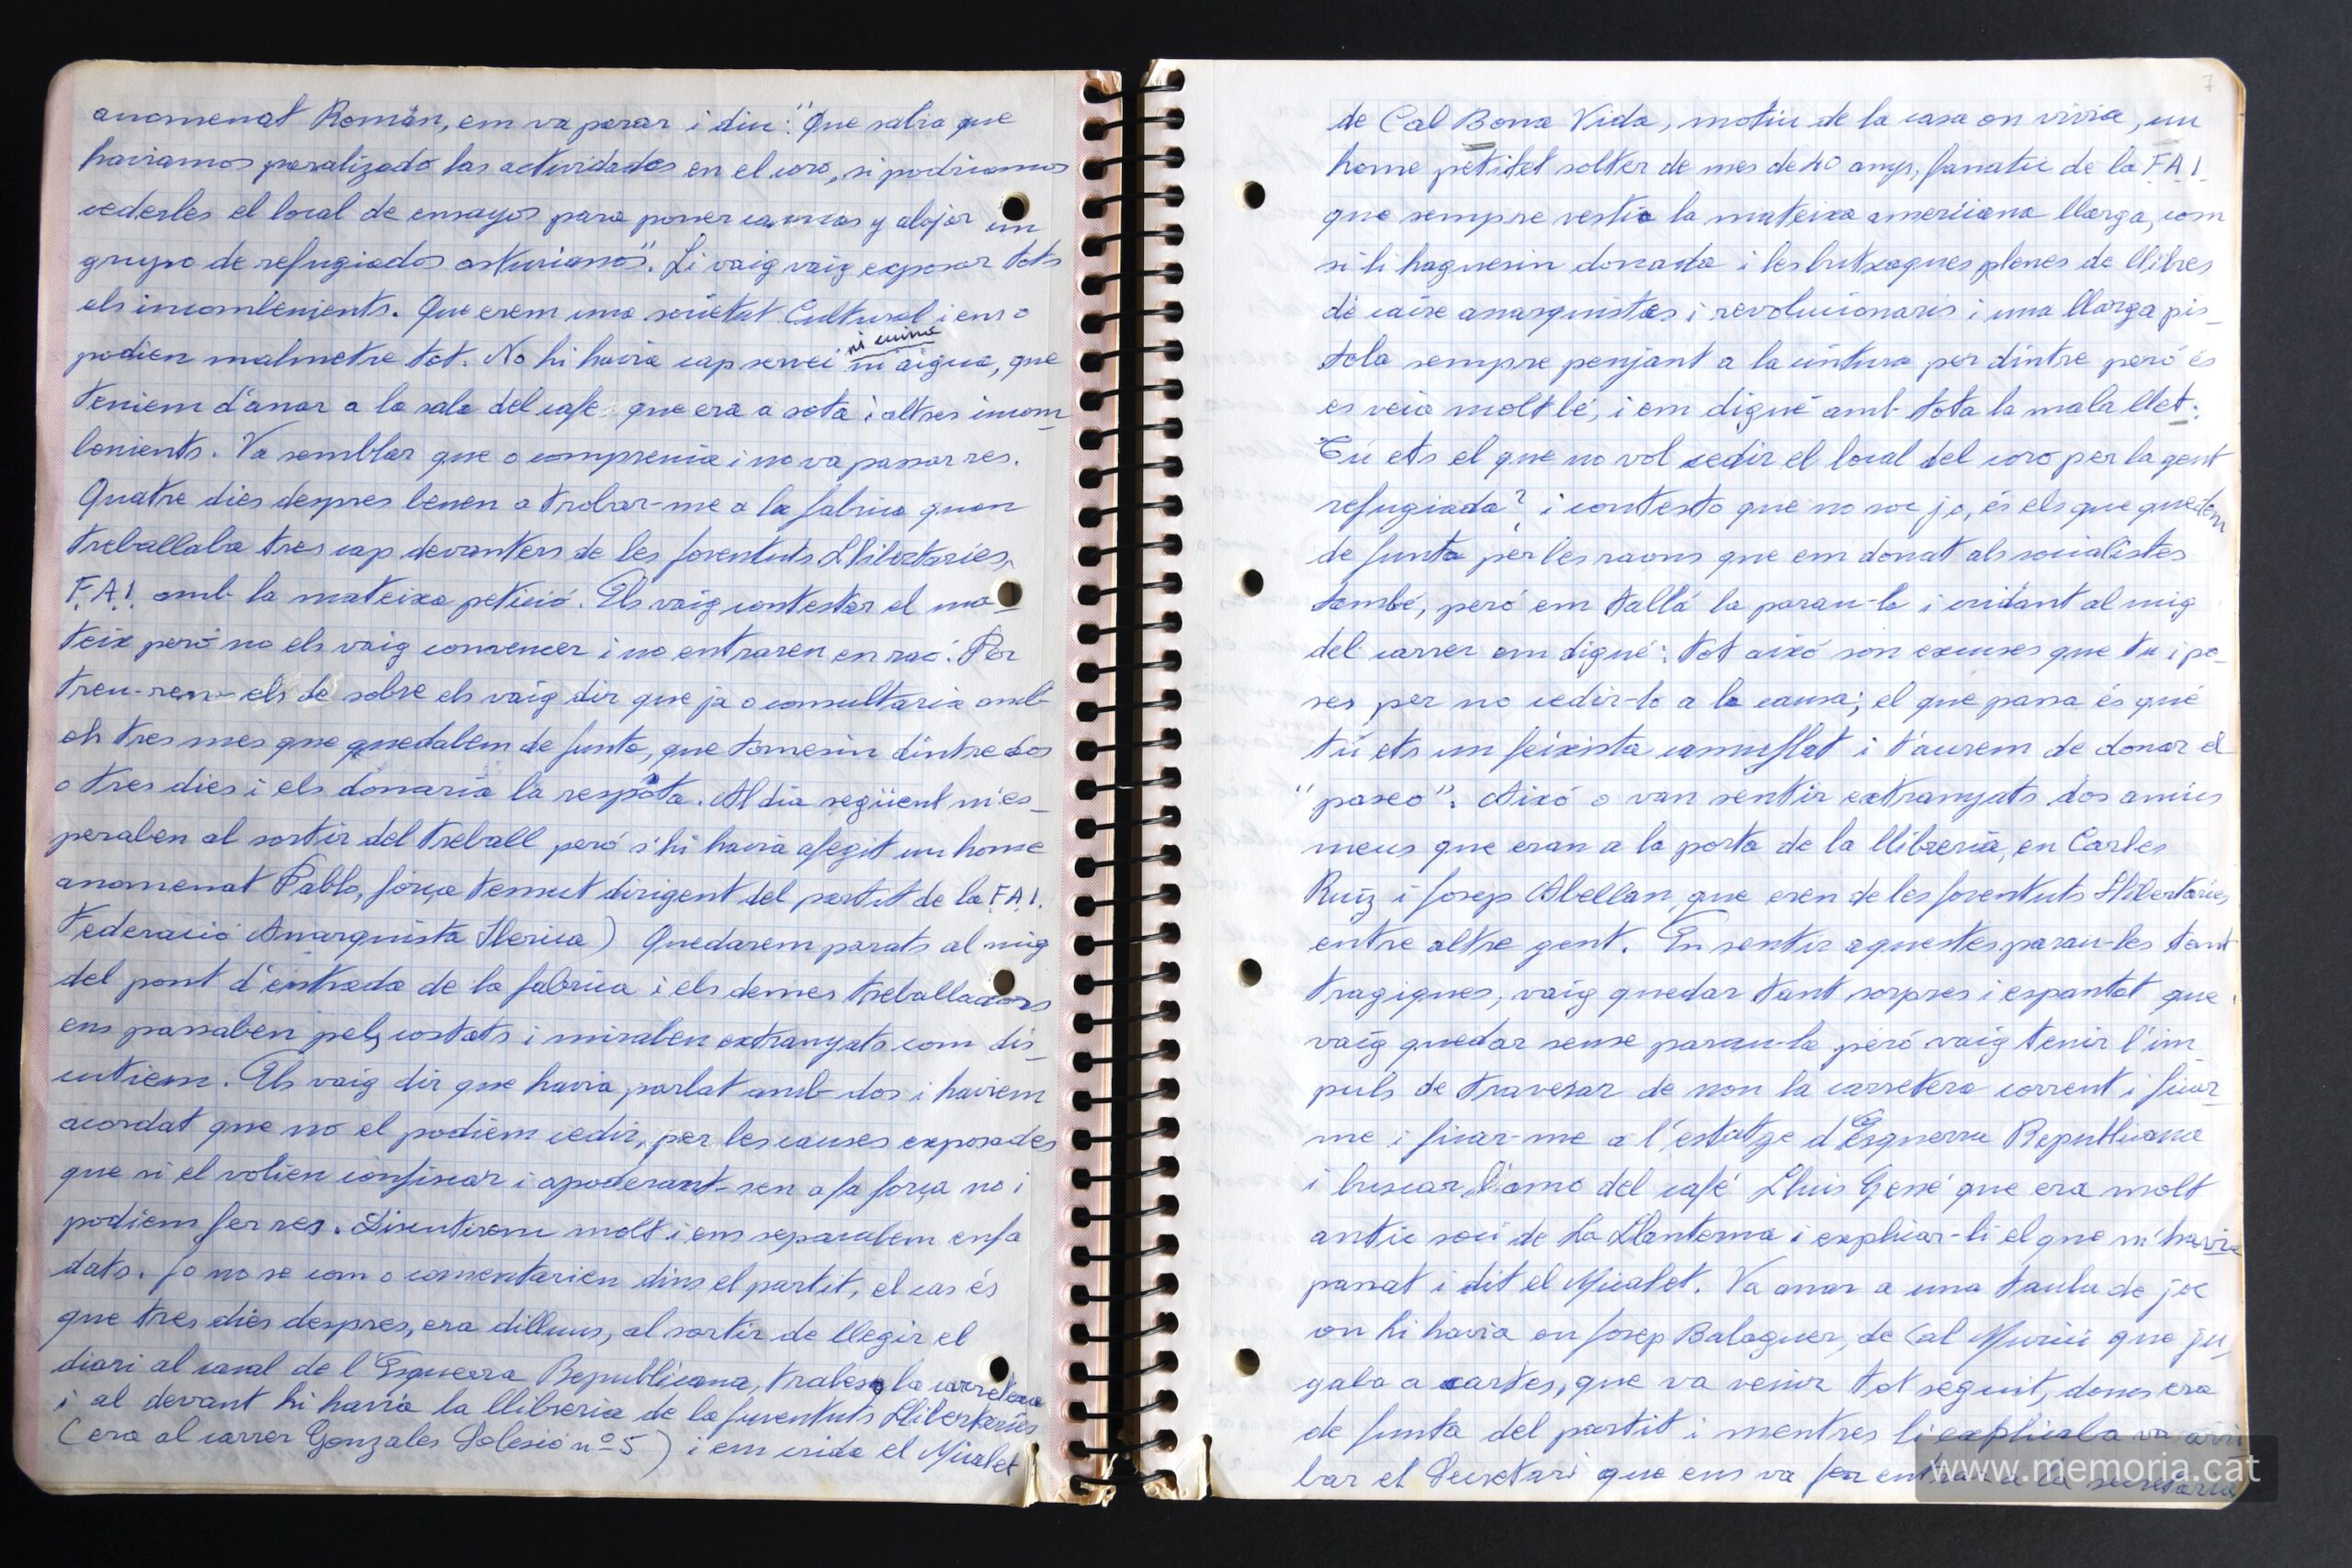 anomenat Román, em va parar i diu: "Que sabia que
haviamos paralizado las actividades en el coro, si podriamos
cederles el local de ensayos para poner camas y alojar un
grupo de refugiados asturianos". Li vaig vaig exposar tots
els incombenients. Que erem una societat Cultural i ens o
podien malmetre tot. No hi havia cap servei ni cuina ni aigua, que
teniem d'anar a la sala del cafe que era a sota i altres incom_
benients. Va semblar que o comprenia i no va passar res.
Quatre dies despres benen a trobar-me a la fabrica quan
treballaba tres cap devanters de les Joventuts Llibertaries,
F.A.I. amb la mateixa petició. Els vaig contestar el ma_
teix però no els vaig convencer i no entraren en raó. Per
treu-ren-els de sobre els vaig dir que ja o consultaria amb
els tres mes que quedabem de Junta, que tornesin dintre dos
o tres dies i els donaria la resposta. Al dia següent m'es_
peraben al sortir del treball però s'hi havia afegit un home
anomenat Pablo, força temut dirigent del partit de la F.A.I.
Federació Anarquista Iberica) Quedarem parats al mig
del pont d'entrada de la fabrica i els demes treballadors
ens passaben pels costats i miraben extranyats com dis_
cutiem. Els vaig dir que havia parlat amb dos i haviem
acordat que no el podiem cedir, per les causes exposades
que si el volien confiscar i apoderant-sen a la força no i
podiem fer res. Discutirem molt i ens separabem enfa
dats. Jo no se com o comentarien dins el partit, el cas és
que tres dies despres, era dilluns, al sortir de llegir el
diari al casal de l'Esquerra Republicana, trabeso la carretera
i al devant hi havia la llibreria de la Juventuts Llibertaries
(era al carrer Gonzales Solesio nº 5) i em crida el Micalet
7
de Cal Bona Vida, motiu de la casa on vivia, un
home petitet solter de mes de 40 anys, fanatic de la F.A.I.
que sempre vestia la mateixa americana llarga, com
si li haguesin donada i les butxaques plenes de llibres
de caire anarquistes i revolucionaris i una llarga pis_
tola sempre penjant a la cintura per dintre però és
es veia molt bé, i em digué amb tota la mala llet:
Tú ets el que no vol cedir el local del coro per la gent
refugiada? i contesto que no soc jo, és els que quedem
de Junta per les raons que em donat als socialistes
també, però em tallá la parau-la i cridant al mig
del carrer em digué: tot aixó son excuses que tu i po_
ses per no cedir-lo a la causa; el que passa és qué
tú ets un feixista camuflat i t'aurem de donar el
"paseo". Aixó o van sentir extranyats dos amics
meus que eran a la porta de la llibreria, en Carles
Ruiz i Josep Abellan que eren de les Joventuts Llibertaries
entre altre gent. En sentir aquestes parau-les tant
tragiques, vaig quedar tant sorpres i espantat que
vaig quedar sense parau-la però vaig tenir l'im_
puls de travesar de nou la carretera corrent i ficar_
me i ficar-me a l'estatge d'Esquerra Republicana
i buscar l'amo del café Lluis Gené que era molt
antic soci de La Llanterna i explicar-li el que m'havia
passat i dit el Micalet. Va anar a una taula de joc
on hi havia en Josep Balaguer, de Cal Murici que ju_
gaba a cartes, que va venir tot seguit, doncs era
de Junta del partit i mentres li explicaba va arri
bar el Secretari que ens va fer entrar a la secretaria
www.memoria.cat